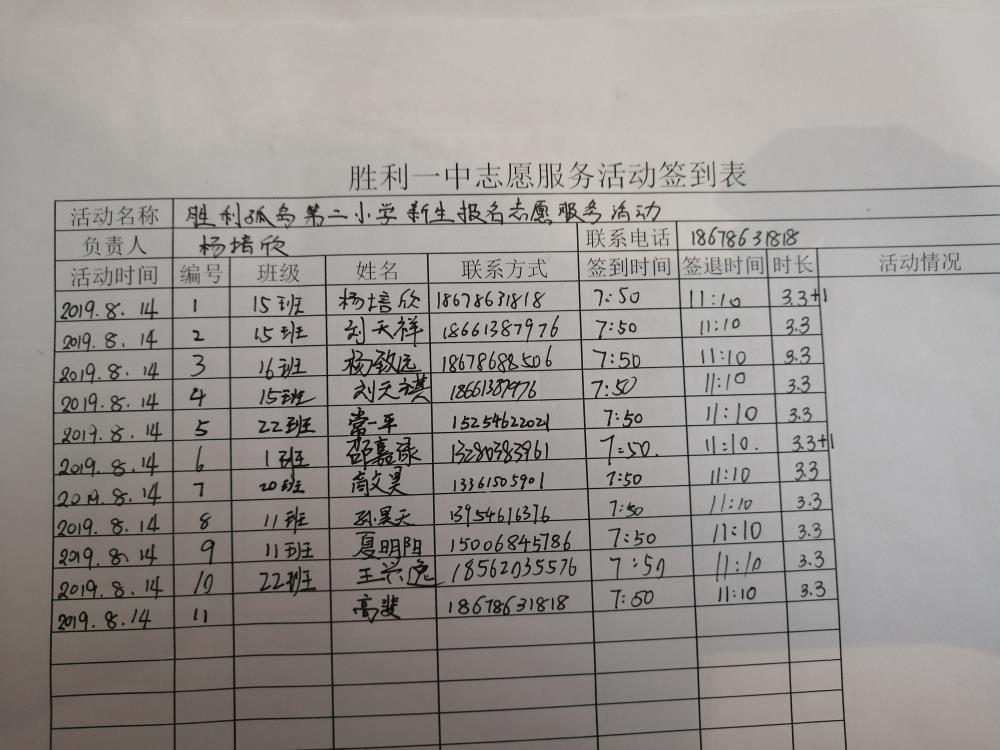 胜利一中志愿服务活动签到表
活动名称 胜利孤岛第二小学新生报名志愿服务活动
负责人 杨培欣 联系电话 18678631818
活动时间 编号 班级 姓名 联系方式 签到时间 签退时间 时长 活动情况
2019.8.14 1 15班 杨培欣 18678631818 7:50 11:10 3.3+1
2019.8.14 2 15班 刘天祥 18661387976 7:50 11:10 3.3
2019.8.14 3 16班 杨致远 18678688506 7:50 11:10 3.3
2019.8.14 4 15班 刘天祺 18661387976 7:50 11:10 3.3
2019.8.14 5 22班 常一平 15254622021 7:50 11:10 3.3
2019.8.14 6 1班 邵嘉禄 13280383961 7:50. 11:10. 3.3+1
2019.8.14 7 20班 高文昊 13361505901 7:50 11:10 3.3
2019.8.14 8 11班 孙昊天 13954616376 7:50 11:10 3.3
2019.8.14 9 11班 夏明阳 15006845786 7:50 11:10 3.3
2019.8.14 10 22班 王兴逸 18562035576 7:50 11:10 3.3
2019.8.14 11 高斐 18678631818 7:50 11:10 3.3